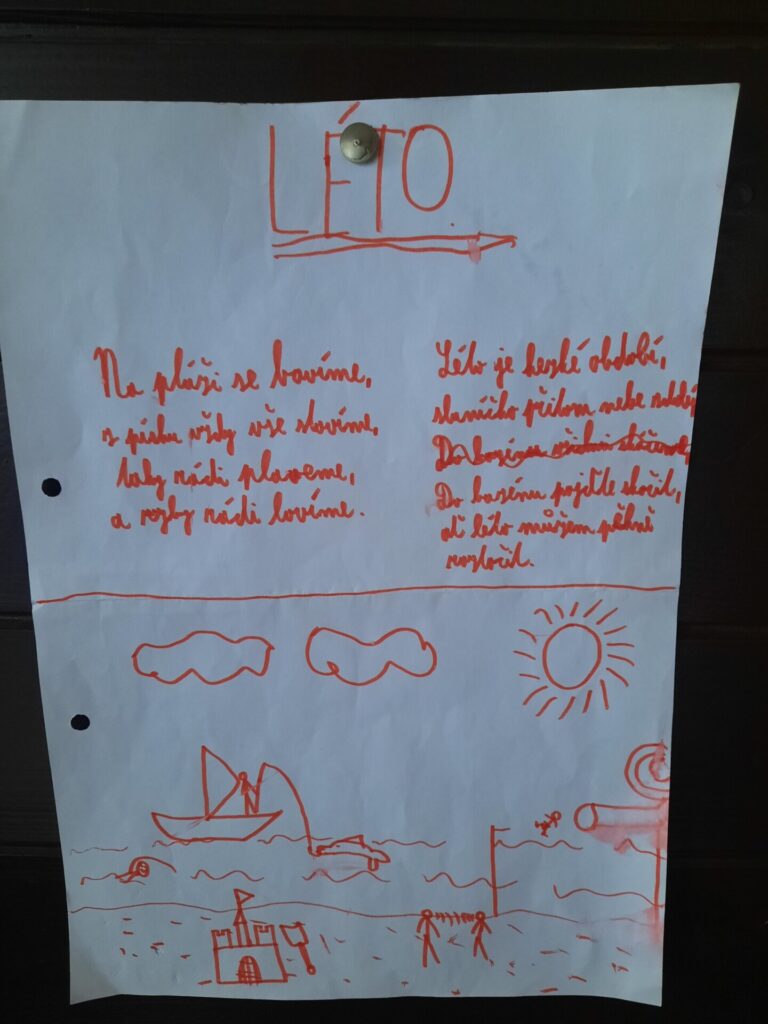 LÉTO.
Na pláži se bavíme,
z písku vždy vše stavíme,
taky rádi plaveme,
a ryby rádi lovíme.
Léto je hezké období,
sluníčko přitom nebe zdobí,
Do bazénu
Do bazénu pojďte skočit,
ať léto můžem pěkně
roztočit.